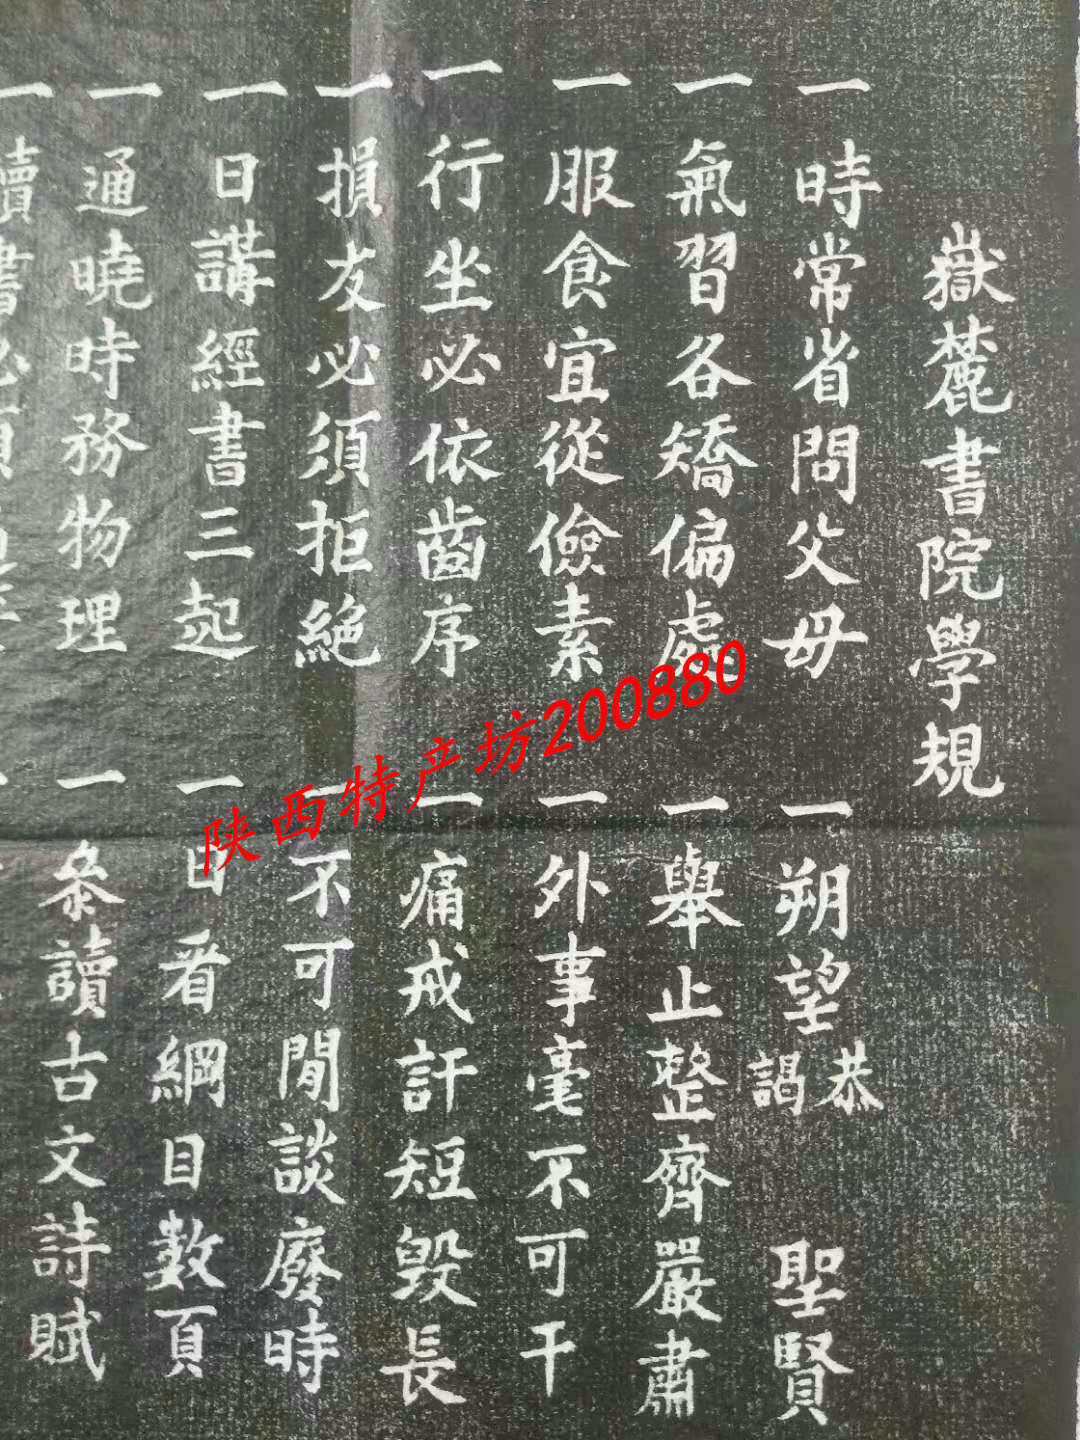 嶽麓書院學規
一時常省問父母
一朔望恭謁聖賢
一氣習各矯偏處
一舉止整齊嚴肅
一服食宜從儉素
一外事毫不可干
一行坐必依齒序
一痛戒訐短毀長
一損友必須拒絕
一不可閒談廢時
一日講經書三起
一日看綱目數頁
一通曉時務物理
一參讀古文詩賦
一讀書必須
陕西特产坊200880